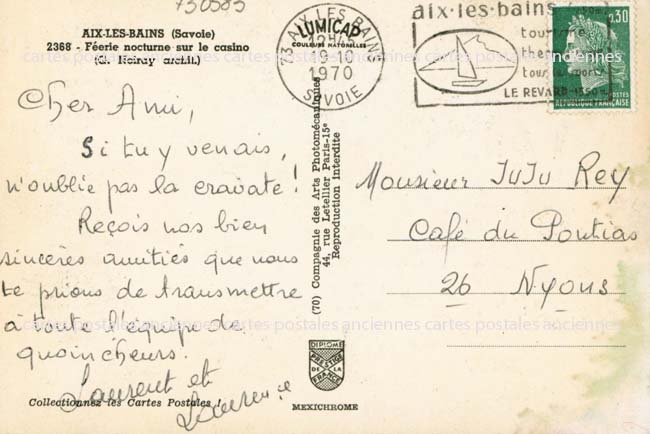 730583
AIX-LES-BAINS (Savoie)
2368 - Féerie nocturne sur le casino
Cher Ami,
Si tu y venais,
n'oublie pas la cravate !
Reçois nos bien
sincères amitiés que nous
te prions de transmettre
à toute l'équipe de
quoincheurs.
Laurent et
Laurence
Collectionnez les Cartes Postales !
LUMICAP
COULEURS NATURELLES
73 AIX LES BAINS
19-10
1970
SAVOIE
aix·les·bains
tourisme
LE REVARD-1550
0,30
POSTES
RÉPUBLIQUE FRANÇAISE
(70) Compagnie des Arts Photomécaniques
44, rue Letellier Paris-15e
Reproduction Interdite
DIPLOME
PRESTIGE
DE LA
FRANCE
MEXICHROME
Monsieur JUJU Rey
Café du Pontias
26 Nyons
cartes postales anciennes cartes postales anciennes cartes postales anciennes
cartes postales anciennes cartes postales anciennes cartes postales anciennes